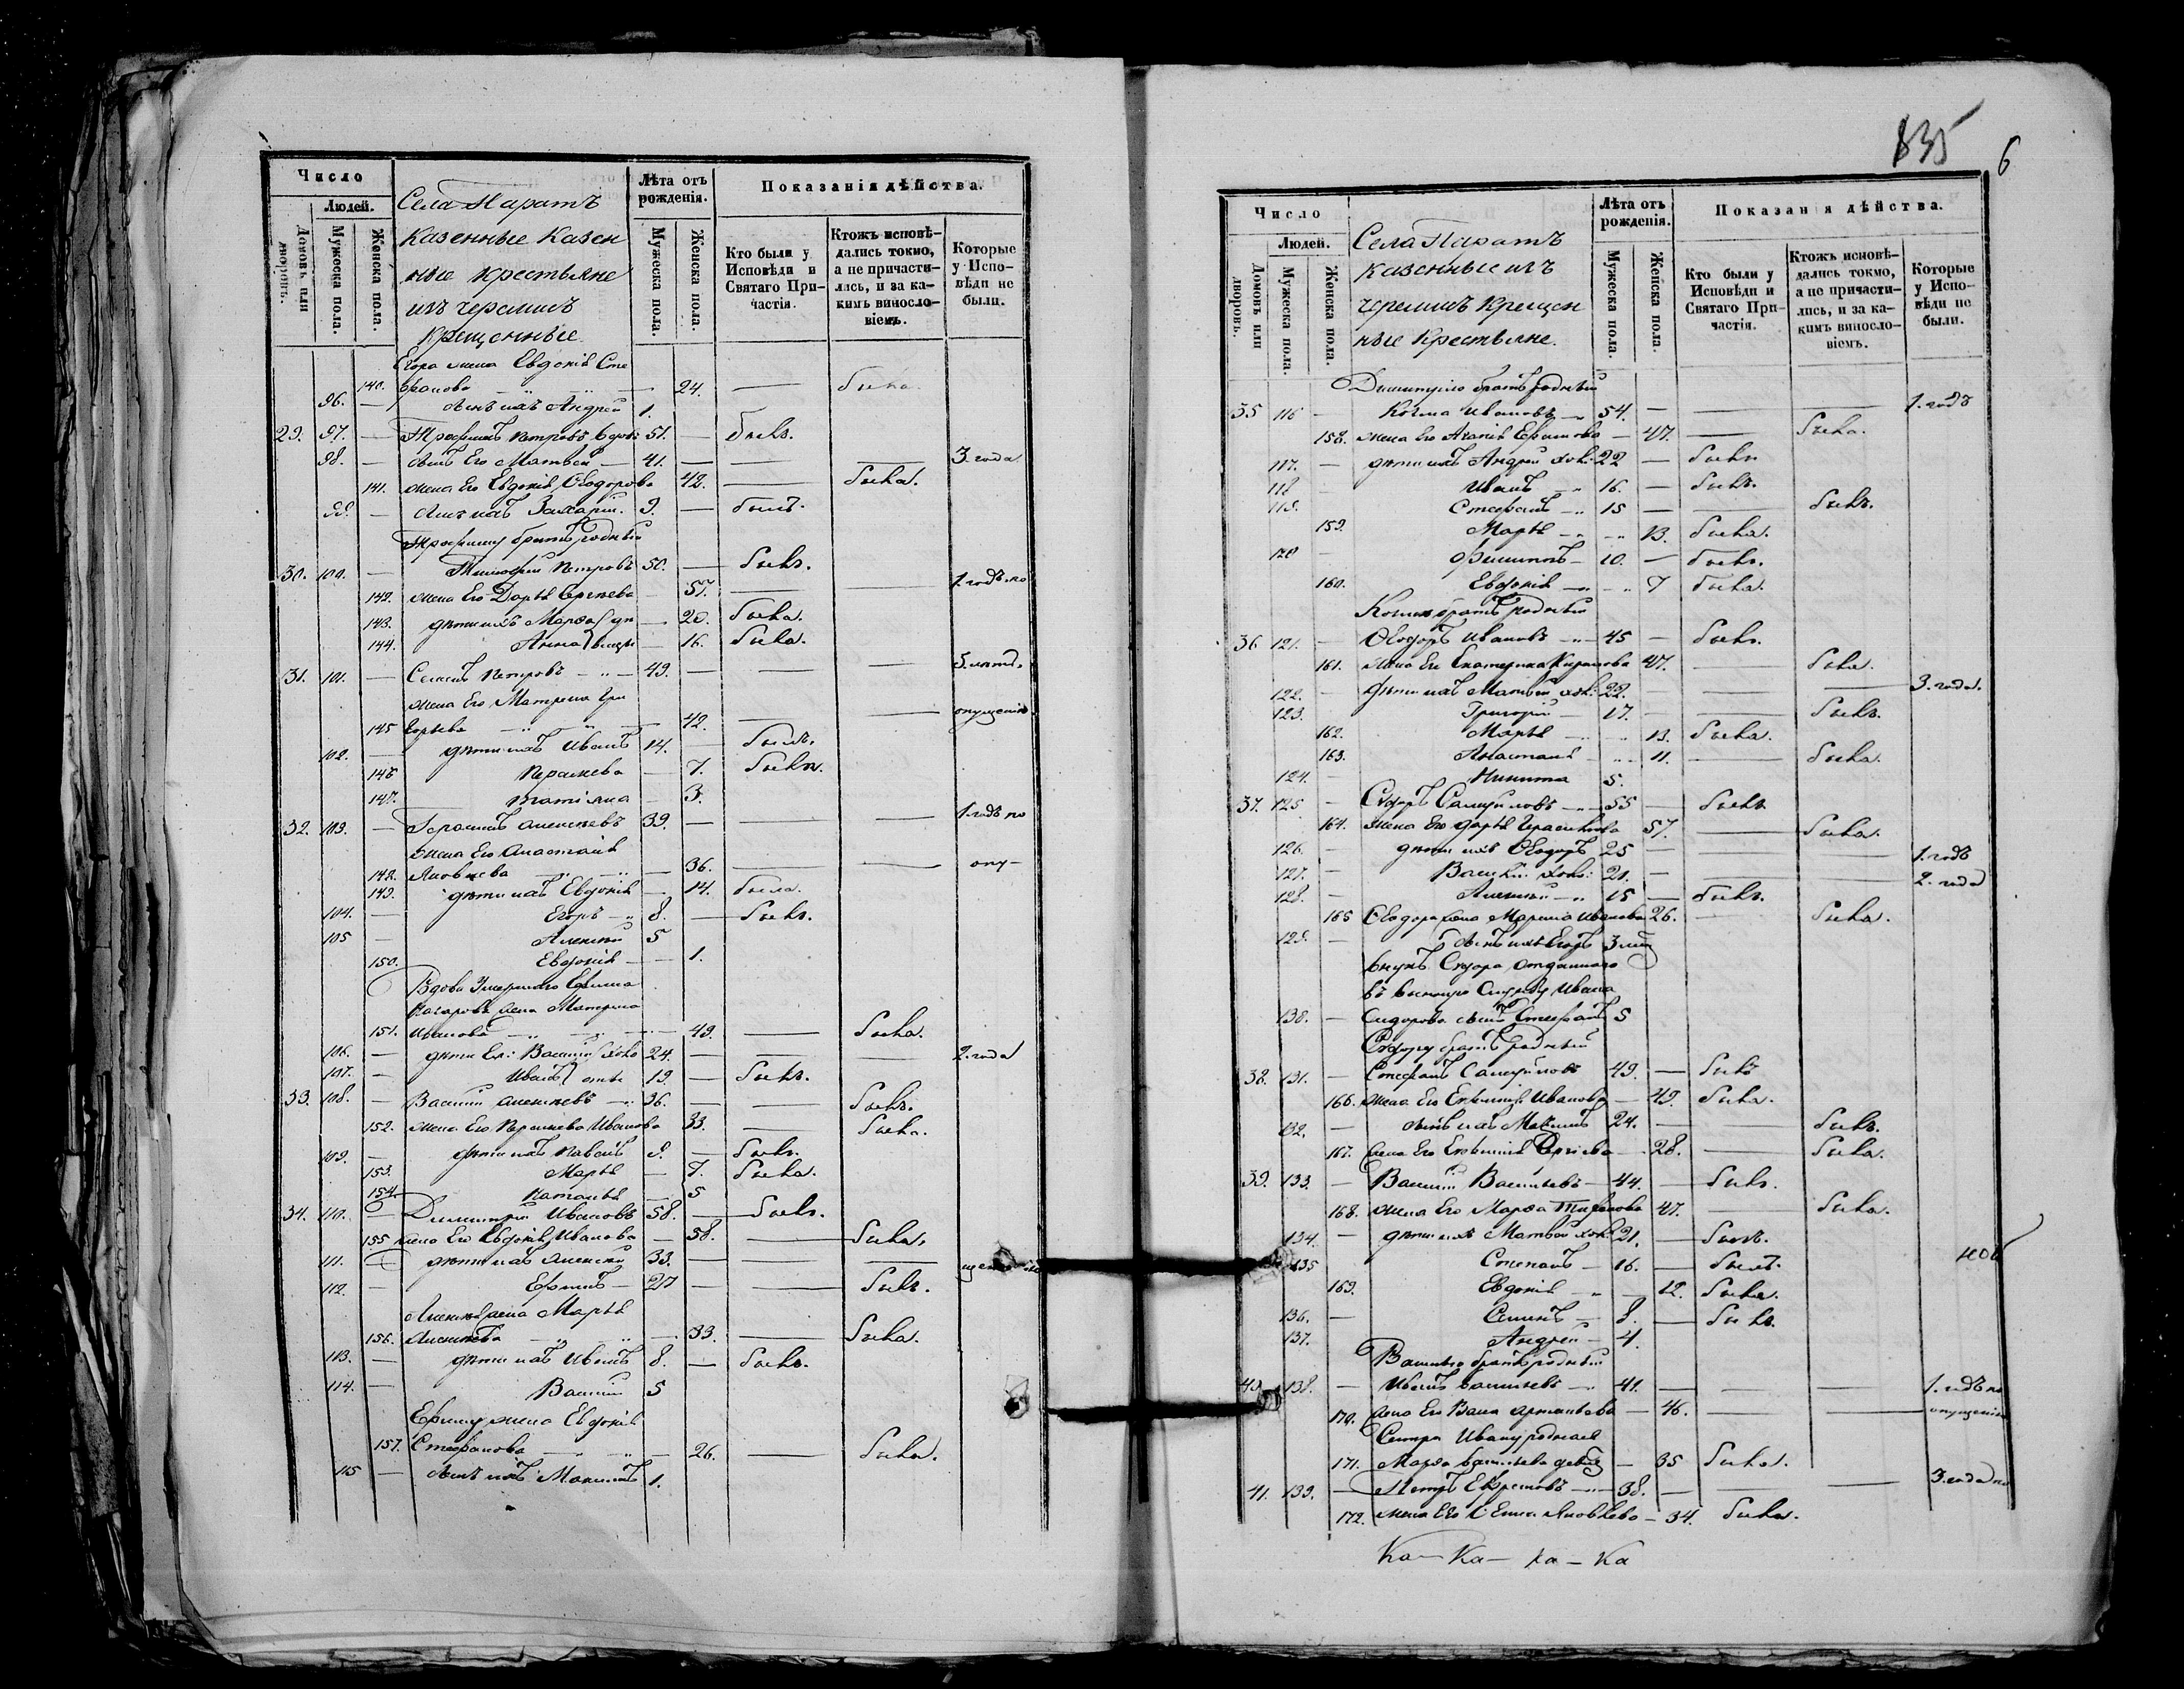 Число
Людей.
Домовъ или дворовъ.
Мужеска пола.
Женска пола.
Села Паратъ
казенные казен
ные крестьяне
изъ черемисъ
крещенные.
Лѣта отъ рожденія.
Мужеска пола.
Женска пола.
Показанія дѣйства.
Кто были у Исповѣди и Святаго Причастія.
Ктожъ исповѣдались токмо, а не причастились, и за какимъ винословіемъ.
Которые у Исповѣди не были.
Егора жена Евдокія Сте
140. фанова — 24. — была.
96. — сынъ ихъ Андрей 1.
29. 97. — Трофимъ Петровъ вдовъ 51. — былъ.
98. — сынъ Его Матвей — 41. — — — 3. года
141. жена Его Евдокія Ѳеодорова 42. — была.
99. — сынъ ихъ Захарій. 9. — былъ.
Трофиму братъ родный
30. 100. — Тимофей Петровъ 50. — былъ.
142. жена Его Дарья Сергеева — 57. — — 1. годъ по
143. дѣти ихъ Марѳа — 20. была.
144. Анна — 16. была.
31. 101. — Семенъ Петровъ — 49. — — — 5. летъ.
жена Его Матрена Гри
145 горьева — 42. — — опущенію
102. — дѣти ихъ Иванъ 14. — былъ.
146 Параскева — 7. была.
147. татіяна — 3.
32. 103. — Герасимъ Алексеевъ 39. — — — 1. годъ по
жена Его Анастасія
148. Яковлева — 36. — — опу-
149. дѣти ихъ Евдокія — 14. была.
104. — Егоръ — 8. — былъ.
105 — Алексей 5
150. Евдокія — 1.
Вдова Умершаго Ефима
Захарова жена Матрена
151. Иванова — 49. — была.
106. — дѣти Ея: Василій хол. 24. — — — 2. года
107. — Иванъ 19. — былъ.
33. 108. — Василій Алексеевъ — 36. — — былъ.
152. жена Его Параскева Иванова 33. — была.
109. — дѣти ихъ Павелъ 9. — былъ.
153. Марья — 7. была.
154. Наталья — 5
34. 110. — Димитрій Ивановъ 58. — былъ.
155 жена Его Евдокія Иванова — 58. — была.
111. дѣти ихъ Алексей 33. — —
112. — Ефимъ — 27 — — былъ.
Алексея жена Марья
156. Алексеева — 33. — была.
113. — дѣти ихъ Иванъ 8. — былъ.
114. — Василій 5
Ефиму жена Евдокія
157. Стефанова — 26. — была.
115 — сынъ ихъ Максимъ 1.
835
6
Число
Людей.
Домовъ или дворовъ.
Мужеска пола.
Женска пола.
Села Паратъ
казенные изъ
черемисъ крещен
ные крестьяне.
Лѣта отъ рожденія.
Мужеска пола.
Женска пола.
Показанія дѣйства.
Кто были у Исповѣди и Святаго Причастія.
Ктожъ исповѣдались токмо, а не причастились, и за какимъ винословіемъ.
Которые у Исповѣди не были.
Димитрію братъ родный
35 116 — Козма Ивановъ — 54. — — — 1. годъ
158. жена Его Агапія Ефимова — 47. — была.
117. — дѣти ихъ Андрей хол: 22 — былъ
118 — Иванъ — 16. — былъ.
119. Стефанъ — 15 — — былъ.
159. Марья — 13. была.
120 — Филиппъ — 10. — былъ.
160. Евдокія — 7 была.
Козме братъ родный
36 121. — Ѳеодоръ Ивановъ — 45 — былъ.
161. жена Его Екатерина 47. — была.
122. — дѣти ихъ Матвей хол: 22. — — — 3. года.
123. Григорій — 17. — — былъ.
162. Марья — 13. была.
163. Анастасія — 11. — была.
124. — Никита 5.
37. 125. — Сидоръ Самуйловъ — 55 — былъ
164. жена Его Дарья Герасимова 57. — была.
126. — дѣти ихъ Ѳеодоръ 25 — — — 1. годъ
127. — Василій хол: 21. — — — 2. года
128. — Алексей — 15 — былъ.
165 Ѳеодора жена Марина Иванова 26. — была.
129. — сынъ ихъ Егоръ 3
внукъ Сидора отданнаго
въ военную Службу Ивана
130. — Сидорова сынъ Стефанъ 5
Сидору братъ родный
38. 131. — Стефанъ Самуйловъ 49. — былъ
166. жена Его Евфимія Иванова — 49. была.
132. — сынъ ихъ Максимъ 24. — — былъ.
167. жена Его Евфимія — 28. — была.
39. 133. — Василій Васильевъ — 44. — былъ.
168. жена Его Марѳа 47. — была.
134. — дѣти ихъ Матвей хол. 21. — былъ.
135 Степанъ — 16. — былъ.
169. Евдокія — 12. была.
136. — Семенъ — 8. — былъ.
137. Андрей — 4.
Василью братъ родный
40. 138. — Иванъ Васильевъ — 41. — — — 1. годъ по
170. жена Его — 46. — — опущенію
Сестра Ивану родная
171. Марѳа Васильева девица — 35 была.
41. 139. — Петръ Ефремовъ — 38. — — — 3. года по
172. жена Его Елена Яковлева — 34. была.
Ка — Ка — ка — ка